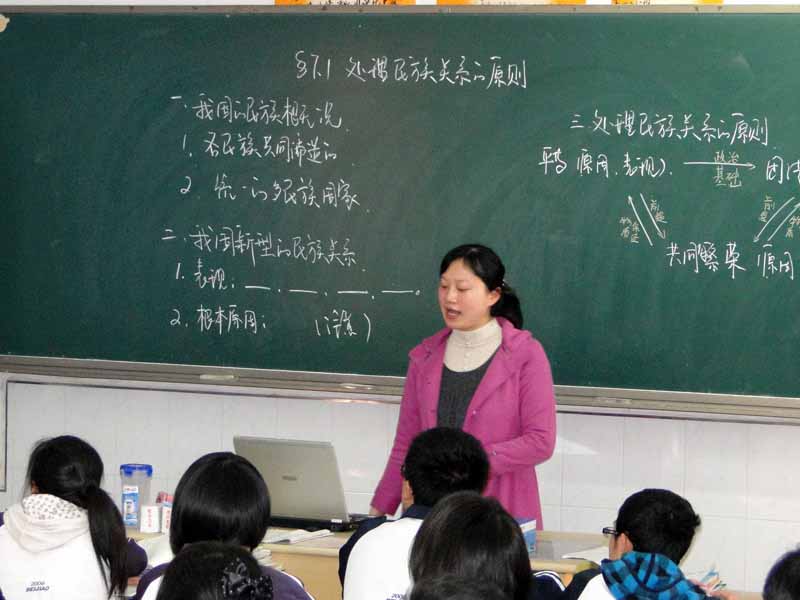 §7.1 处理民族关系的原则
一. 我国的民族相关况
1. 各民族共同缔造的
2. 统一的多民族国家.
二. 我国新型的民族关系.
1. 表现:
2. 根本原因: (注意)
三 处理民族关系的原则.
平等 原因. 表现).
政治
基础
团结
前提
物质
保证
前提
物质
共同繁荣 原因
2008
BEIJIAO